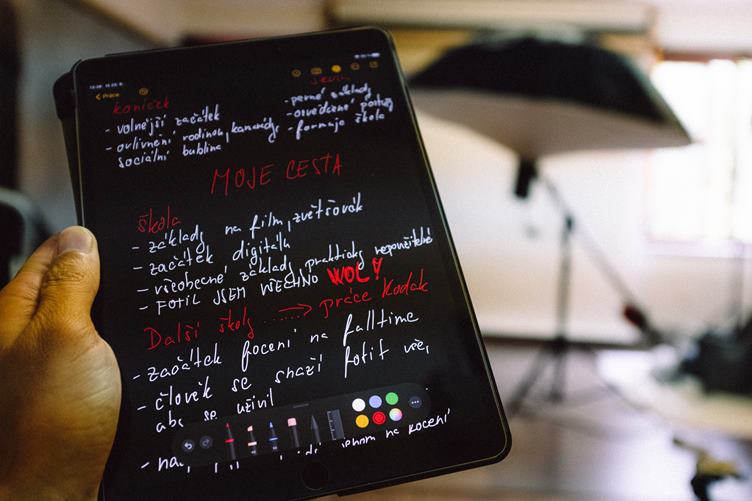 Práce
koníček
- volnější začátek
- ovlivnění rodinou, kamarády,
sociální bublina
škola
- pevné základy
- osvědčené postupy
- formuje škola
MOJE CESTA
škola
- základy na film, zvětšovák
- začátek digitálu
- všeobecné základy prakticky nepoužitelné
- FOTIL JSEM VŠECHNO WOLE!
Další školy ----> práce Kodak
- začátek focení na fulltime
- člověk se snaží fotit vše,
aby se uživil
jenom na focení